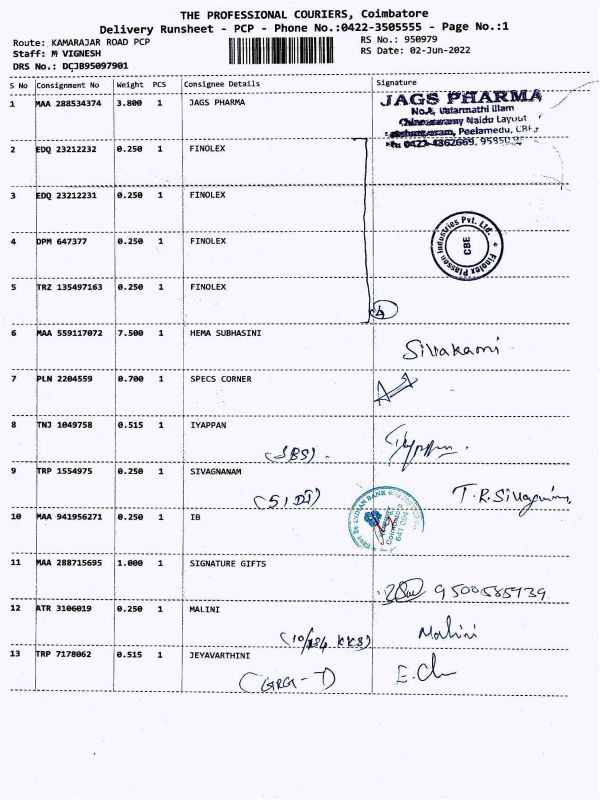 THE PROFESSIONAL COURIERS, Coimbatore
Delivery Runsheet - PCP - Phone No.:0422-3505555 - Page No.:1
Route: KAMARAJAR ROAD PCP
RS No.: 950979
Staff: M VIGNESH
RS Date: 02-Jun-2022
DRS No.: DCJB95097901
S No Consignment No Weight PCS Consignee Details Signature
1 MAA 288534374 3.800 1 JAGS PHARMA
JAGS PHARMA
Naidu Layout
Peelamedu,
2 EDQ 23212232 0.250 1 FINOLEX
3 EDQ 23212231 0.250 1 FINOLEX
4 DPM 647377 0.250 1 FINOLEX
Finolex Plasson Industries Pvt. Ltd.
CBE
5 TRZ 135497163 0.250 1 FINOLEX
4
6 MAA 559117072 7.500 1 HEMA SUBHASINI
Sivakami
7 PLN 2204559 0.700 1 SPECS CORNER
8 TNJ 1049758 0.515 1 IYAPPAN
9 TRP 1554975 0.250 1 SIVAGNANAM
10 MAA 941956271 0.250 1 IB
INDIAN BANK
Coimbatore
11 MAA 288715695 1.000 1 SIGNATURE GIFTS
12 ATR 3106019 0.250 1 MALINI
Malini
13 TRP 7178062 0.515 1 JEYAVARTHINI